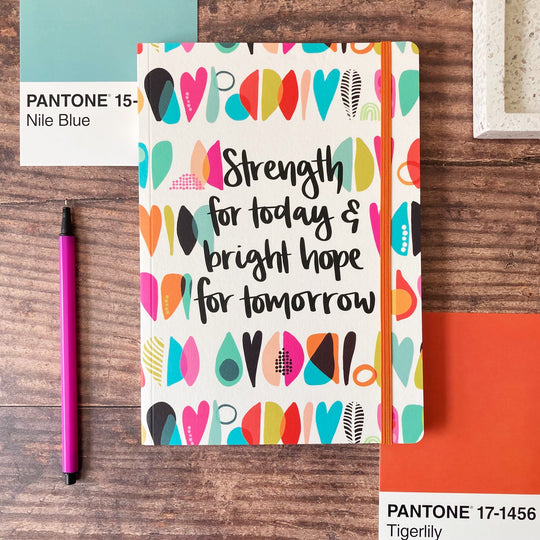 PANTONE® 15-
Nile Blue
Strength
for today &
bright hope
for tomorrow
PANTONE® 17-1456
Tigerlily